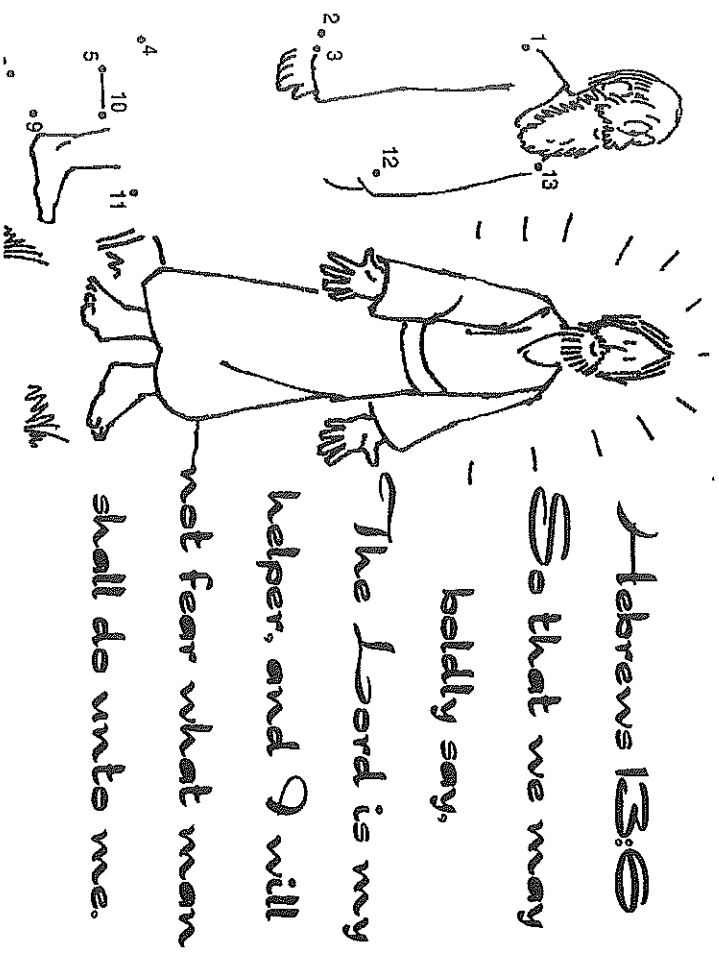 Hebrews 13:6
So that we may
boldly say,
The Lord is my
helper, and I will
not fear what man
shall do unto me.
1
13
2
3
12
4
5
10
11
9